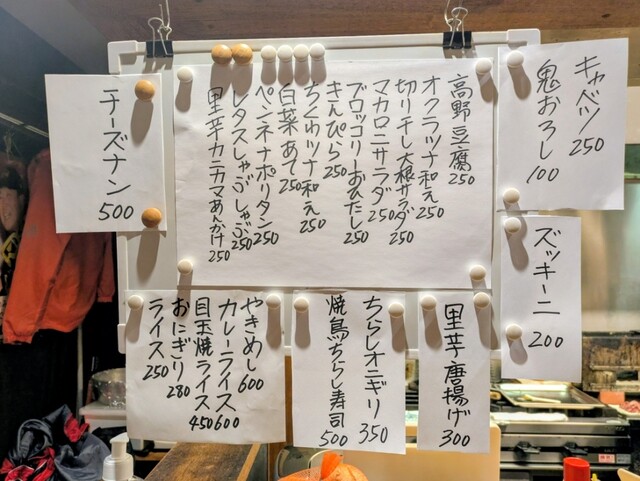 キャベツ 250
鬼おろし 100
ズッキーニ 200
高野豆腐 250
オクラツナ和え 250
切り干し大根サラダ 250
マカロニサラダ 250
ブロッコリーおひたし 250
きんぴら 250
ちくわツナ和え 250
白菜あて 250
ペンネナポリタン 250
レタスしゃぶしゃぶ 250
里芋カニカマあんかけ 250
チーズナン 500
里芋唐揚げ 300
ちらしオニギリ 350
焼鳥ちらし寿司 500
やきめし 600
カレーライス 600
目玉焼ライス 450
おにぎり 280
ライス 250